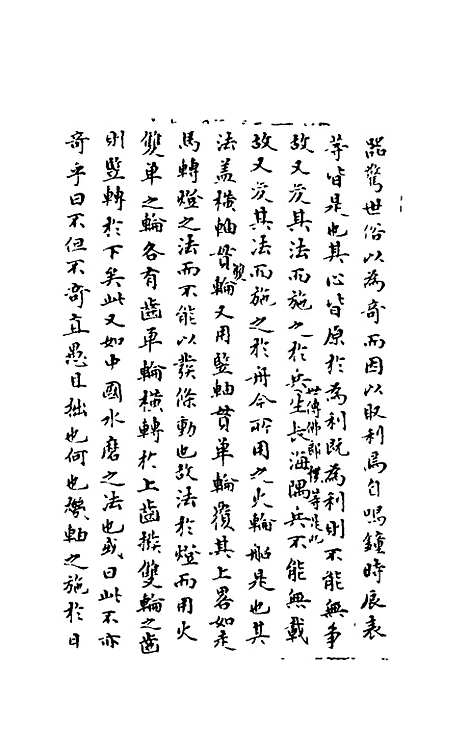 器驚世俗以為奇而因以取利焉自鳴鐘時辰表
等皆是也其心皆原於為利既為利則不能無爭
故又廣其法而施之於兵世傳佛郎機等是此生長海隅兵不能無載
故又廣其法而施之於舟今所用之火輪船是也其
法蓋橫軸貫雙輪又用豎軸貫單輪覆其上畧如走
馬轉燈之法而不能以發條動也故法於燈而用火
雙單之輪各有齒車輪橫轉於上齒撥雙輪之齒
則豎轉於下矣此又如中國水磨之法也或曰此不亦
奇乎曰不但不奇直愚且拙也何也發軸之施於日